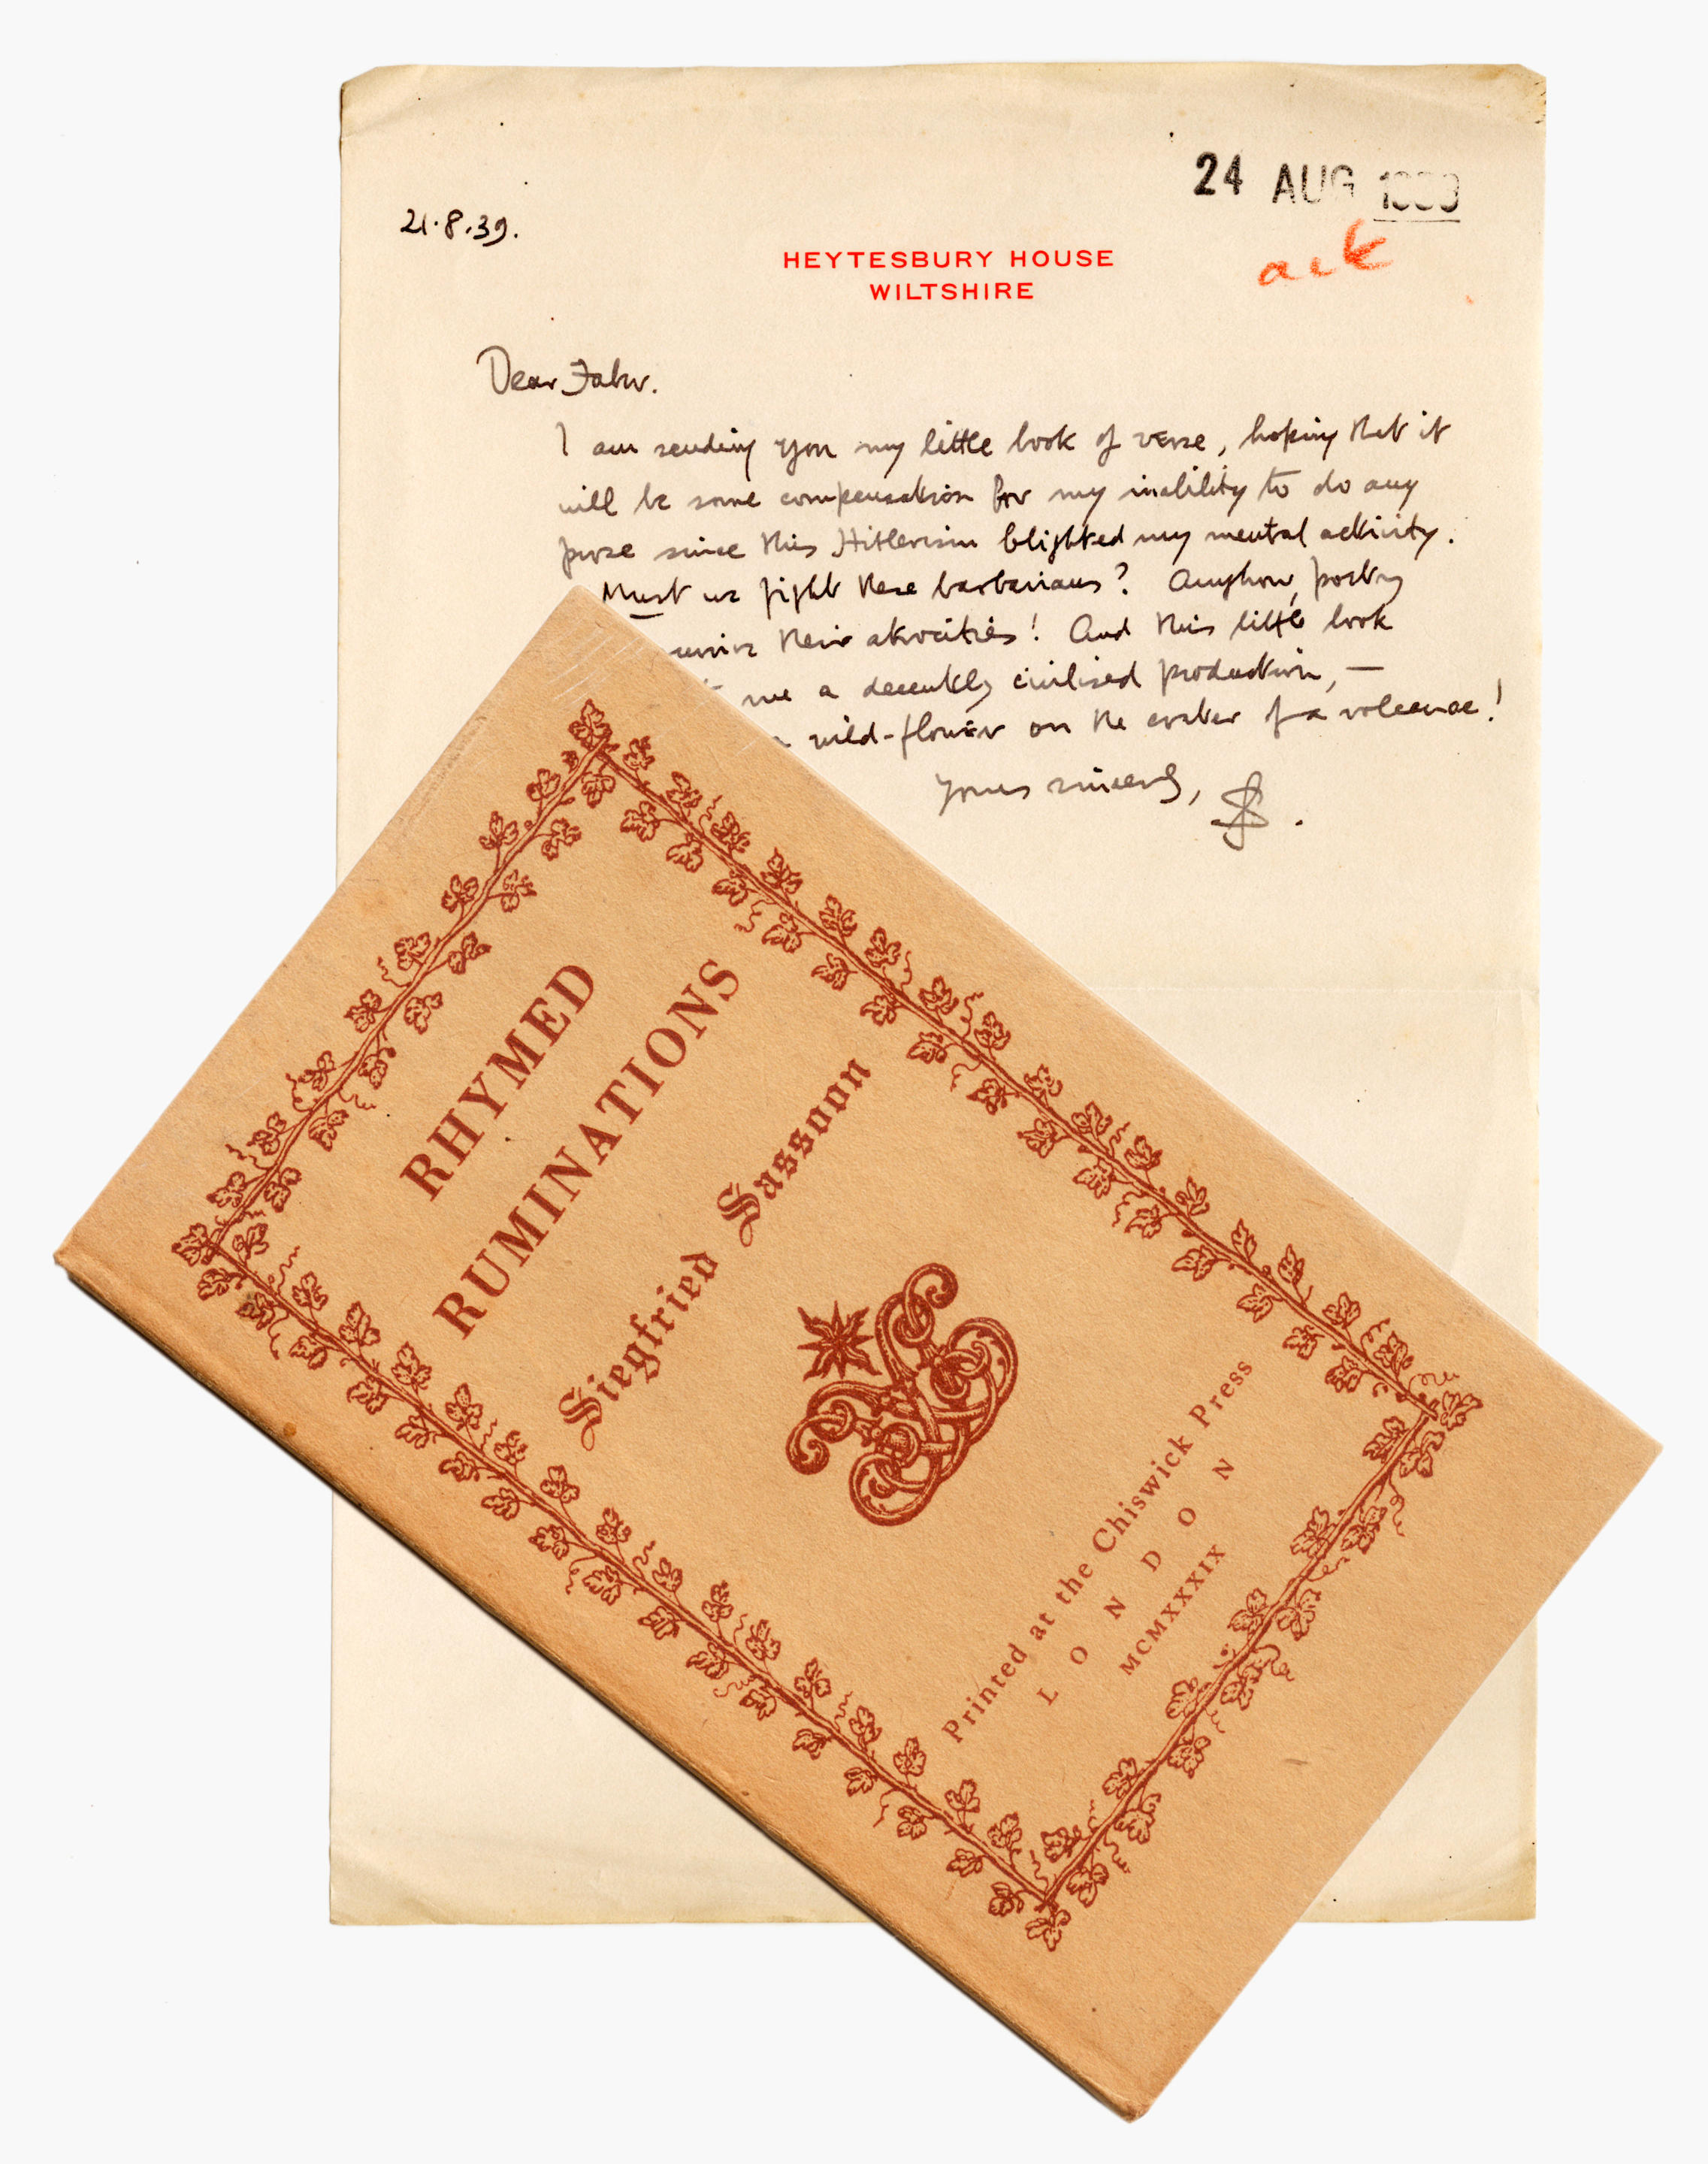 24 AUG 1939
21.8.39.
ack
HEYTESBURY HOUSE
WILTSHIRE
Dear Faber.
I am sending you my little book of verse, hoping that it
will be some compensation for my inability to do any
prose since this Hitlerism blighted my mental activity.
Must we fight these barbarians? Anyhow, poetry
survive their atrocities! And this little book
me a decently civilised production, —
wild-flower on the crater of a volcanoe!
Yours sincerely, SS.
RHYMED
RUMINATIONS
Siegfried Sassoon
Printed at the Chiswick Press
LONDON
MCMXXXIX